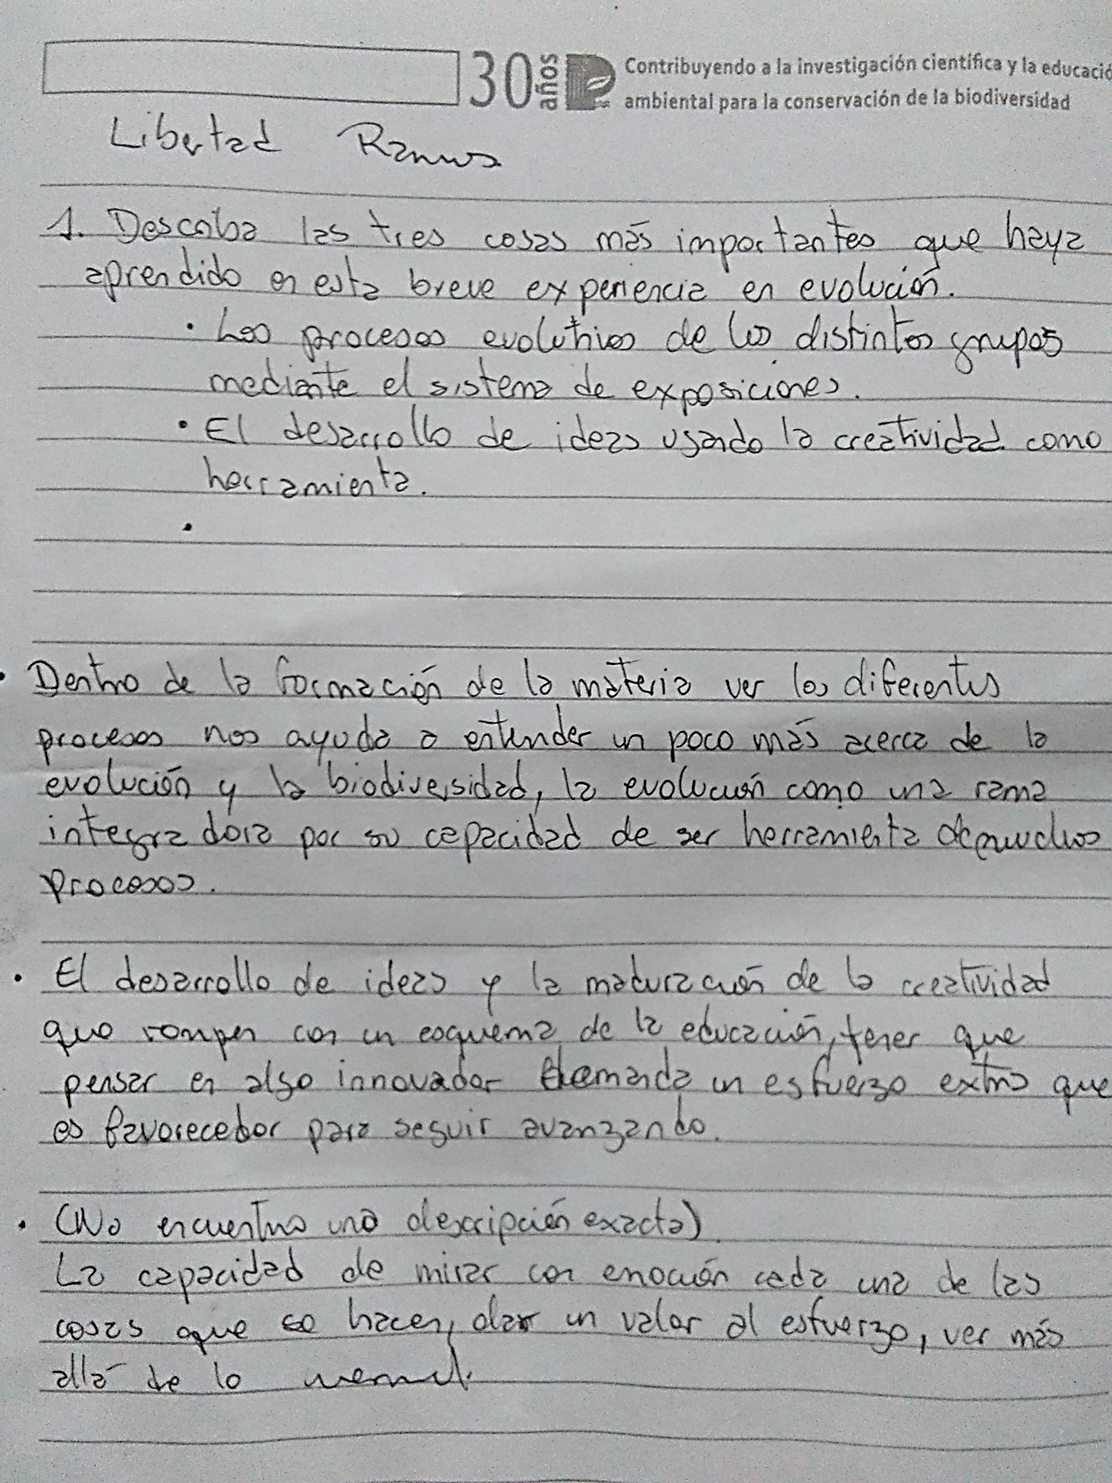 30 años
Contribuyendo a la investigación científica y la educació
ambiental para la conservación de la biodiversidad
Libertad Ramos
1. Describa las tres cosas más importantes que haya
aprendido en esta breve experiencia en evolución.
· Los procesos evolutivos de los distintos grupos
mediante el sistema de exposiciones.
· El desarrollo de ideas usando la creatividad como
herramienta.
·
· Dentro de la formación de la materia ver los diferentes
procesos nos ayuda a entender un poco más acerca de la
evolución y la biodiversidad, la evolución como una rama
integradora por su capacidad de ser herramienta de muchos
procesos.
· El desarrollo de ideas y la maduración de la creatividad
que rompen con un esquema de la educación, tener que
pensar en algo innovador demanda un esfuerzo extra que
es favorecedor para seguir avanzando.
· (No encuentro una descripción exacta)
La capacidad de mirar con emoción cada una de las
cosas que se hacen, dar un valor al esfuerzo, ver más
allá de lo